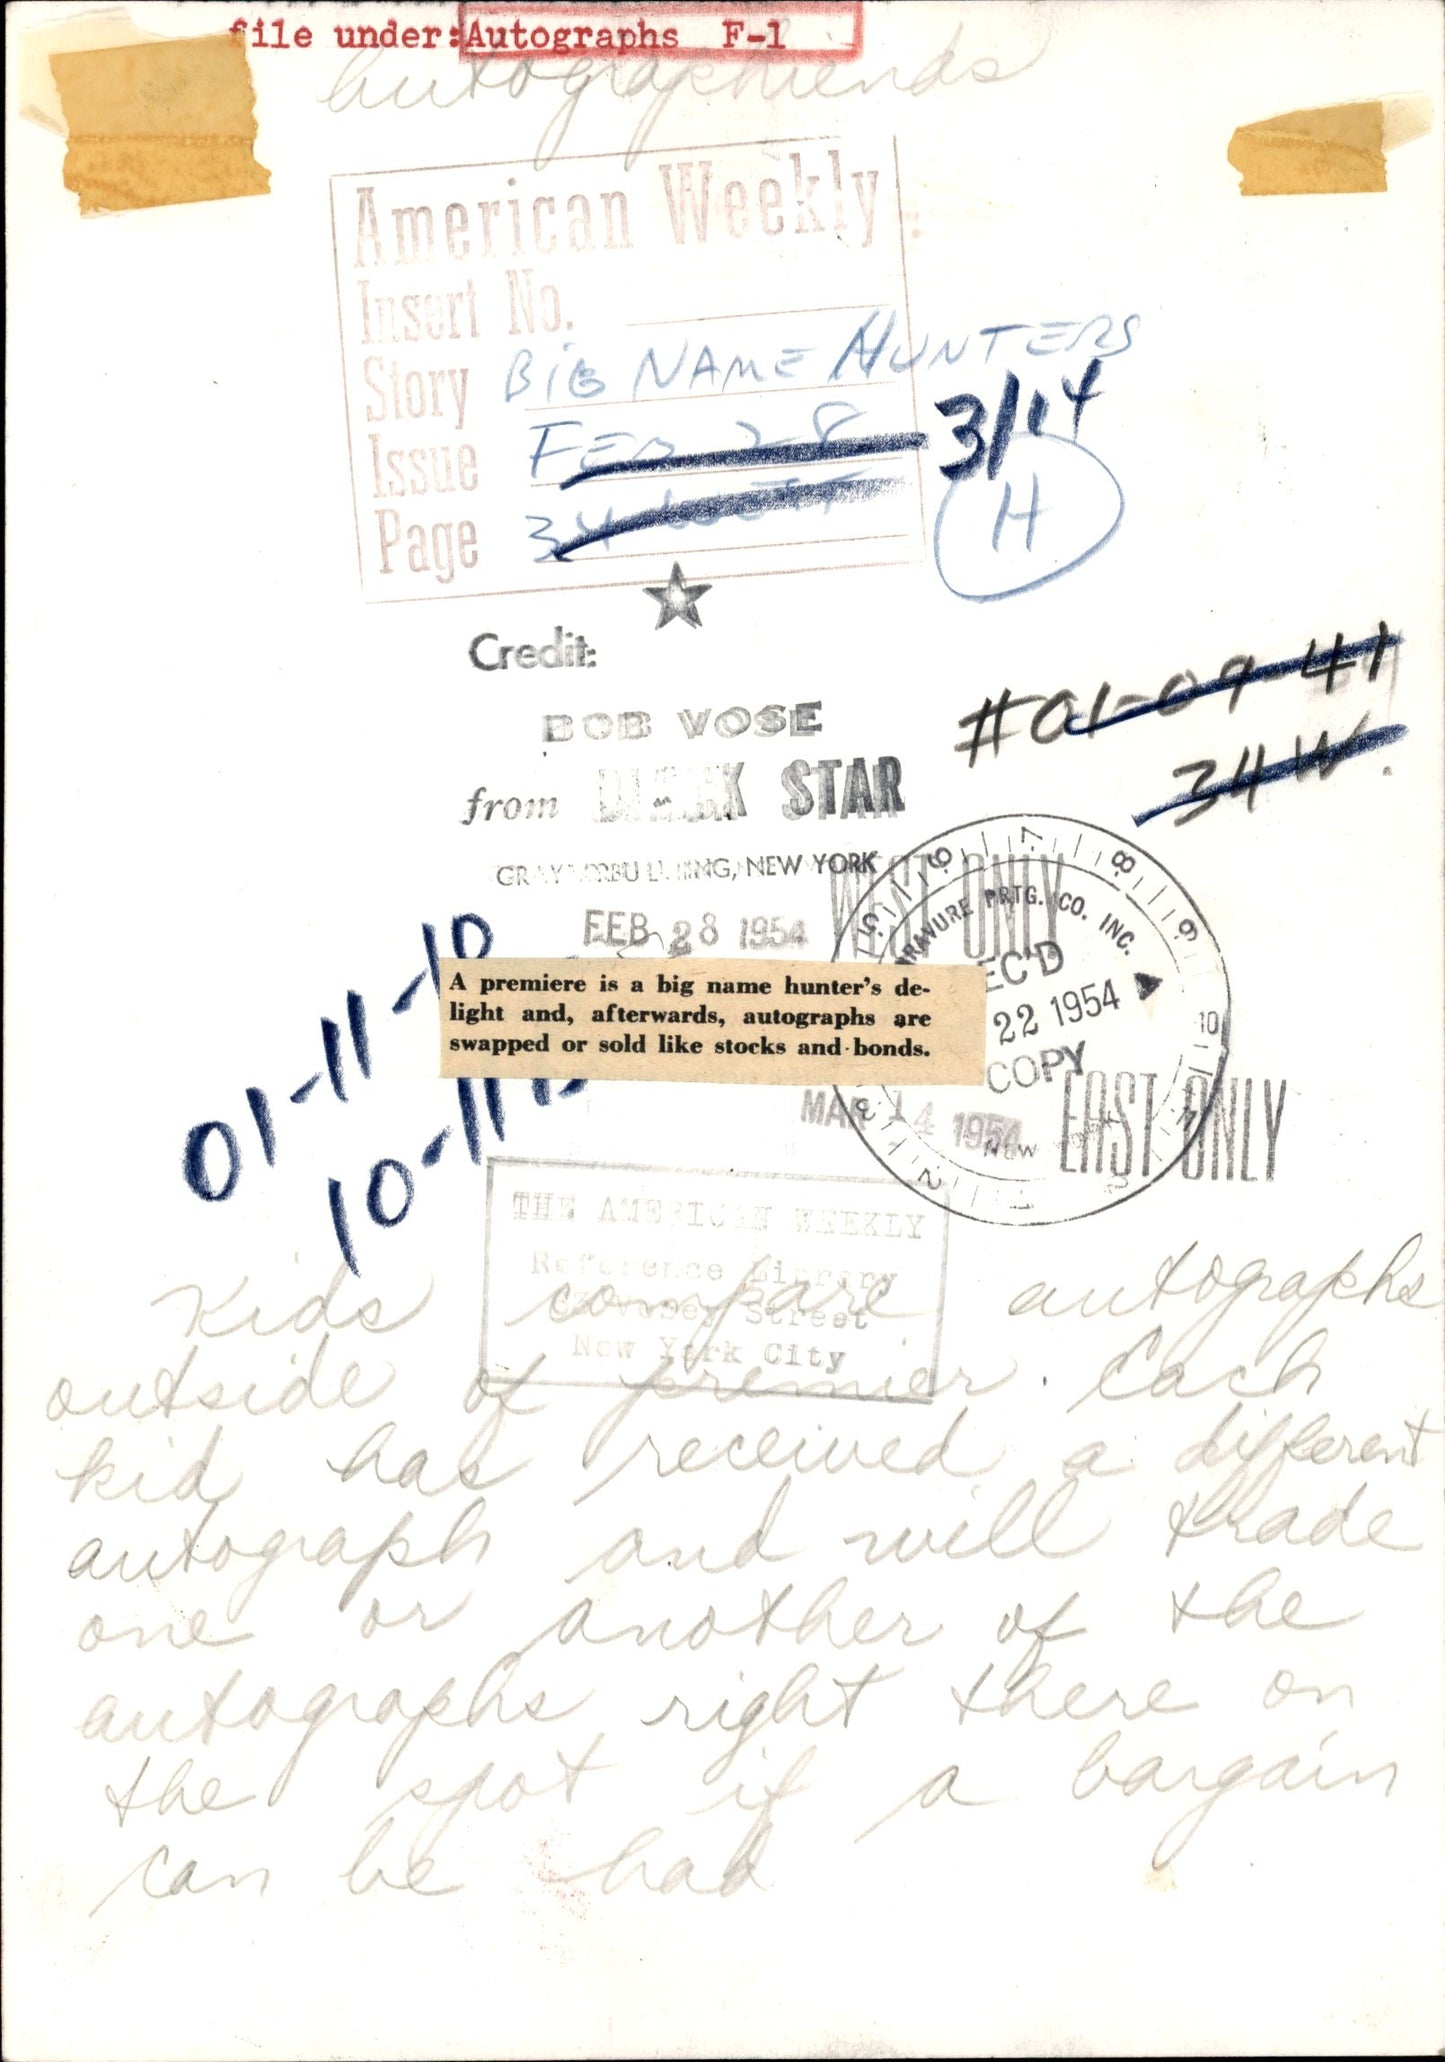 file under: Autographs F-1
Autographiends
American Weekly
Insert No.
Story BIG NAME HUNTERS
Issue FEB 28 3/14
Page 34 H
Credit:
BOB VOSE
from BLACK STAR
#01-09-41
34 W.
NEW YORK
WEST ONLY
FEB 28 1954
01-11-10
10-11
A premiere is a big name hunter's de-
light and, afterwards, autographs are
swapped or sold like stocks and bonds.
PRTG. CO. INC.
22 1954
COPY
MAR 14 1954
NEW YORK
EAST ONLY
5 6 7 8 9 10 1 2 3
THE AMERICAN WEEKLY
Reference Library
Street
New York City
Kids compare autographs
outside of premier. Each
kid has received a different
autograph and will trade
one or another of the
autographs right there on
the spot if a bargain
can be had